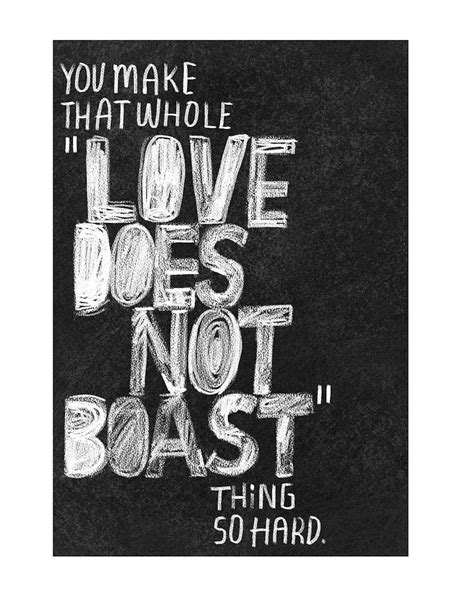 YOU MAKE
THAT WHOLE
"LOVE
DOES
NOT
BOAST"
THiNG
SO HARD.